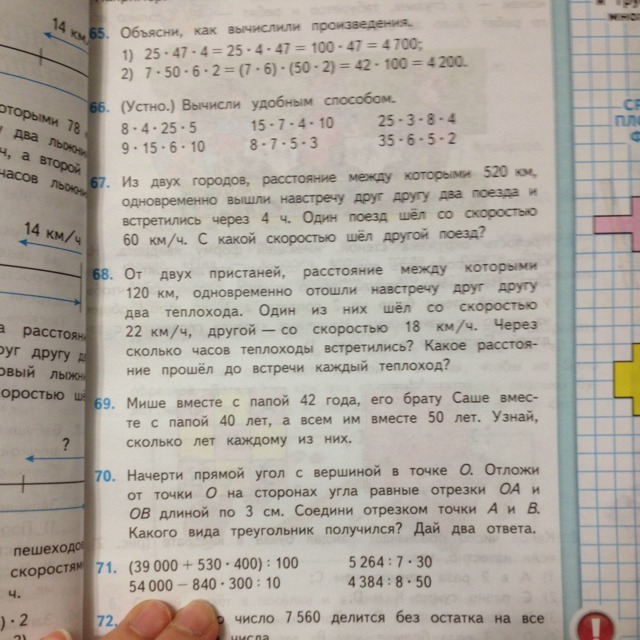 14 км
65. Объясни, как вычислили произведения.
1) 25 · 47 · 4 = 25 · 4 · 47 = 100 · 47 = 4 700;
2) 7 · 50 · 6 · 2 = (7 · 6) · (50 · 2) = 42 · 100 = 4 200.
66. (Устно.) Вычисли удобным способом.
8 · 4 · 25 · 5 15 · 7 · 4 · 10 25 · 3 · 8 · 4
9 · 15 · 6 · 10 8 · 7 · 5 · 3 35 · 6 · 5 · 2
67. Из двух городов, расстояние между которыми 520 км,
одновременно вышли навстречу друг другу два поезда и
встретились через 4 ч. Один поезд шёл со скоростью
60 км/ч. С какой скоростью шёл другой поезд?
68. От двух пристаней, расстояние между которыми
120 км, одновременно отошли навстречу друг другу
два теплохода. Один из них шёл со скоростью
22 км/ч, другой — со скоростью 18 км/ч. Через
сколько часов теплоходы встретились? Какое расстоя-
ние прошёл до встречи каждый теплоход?
69. Мише вместе с папой 42 года, его брату Саше вмес-
те с папой 40 лет, а всем им вместе 50 лет. Узнай,
сколько лет каждому из них.
70. Начерти прямой угол с вершиной в точке O. Отложи
от точки O на сторонах угла равные отрезки OA и
OB длиной по 3 см. Соедини отрезком точки A и B.
Какого вида треугольник получился? Дай два ответа.
71. (39 000 + 530 · 400) : 100 5 264 : 7 · 30
54 000 − 840 · 300 : 10 4 384 : 8 · 50
72. число 7 560 делится без остатка на все
числа
оторыми 78
два лыжни
ч, а второй
часов лыжни
14 км/ч
а расстоян
руг другу д
рвый лыжн
оростью ш
?
пешеходов
скоростям
ч.
) · 2
СР
ПЛО
Ф
!